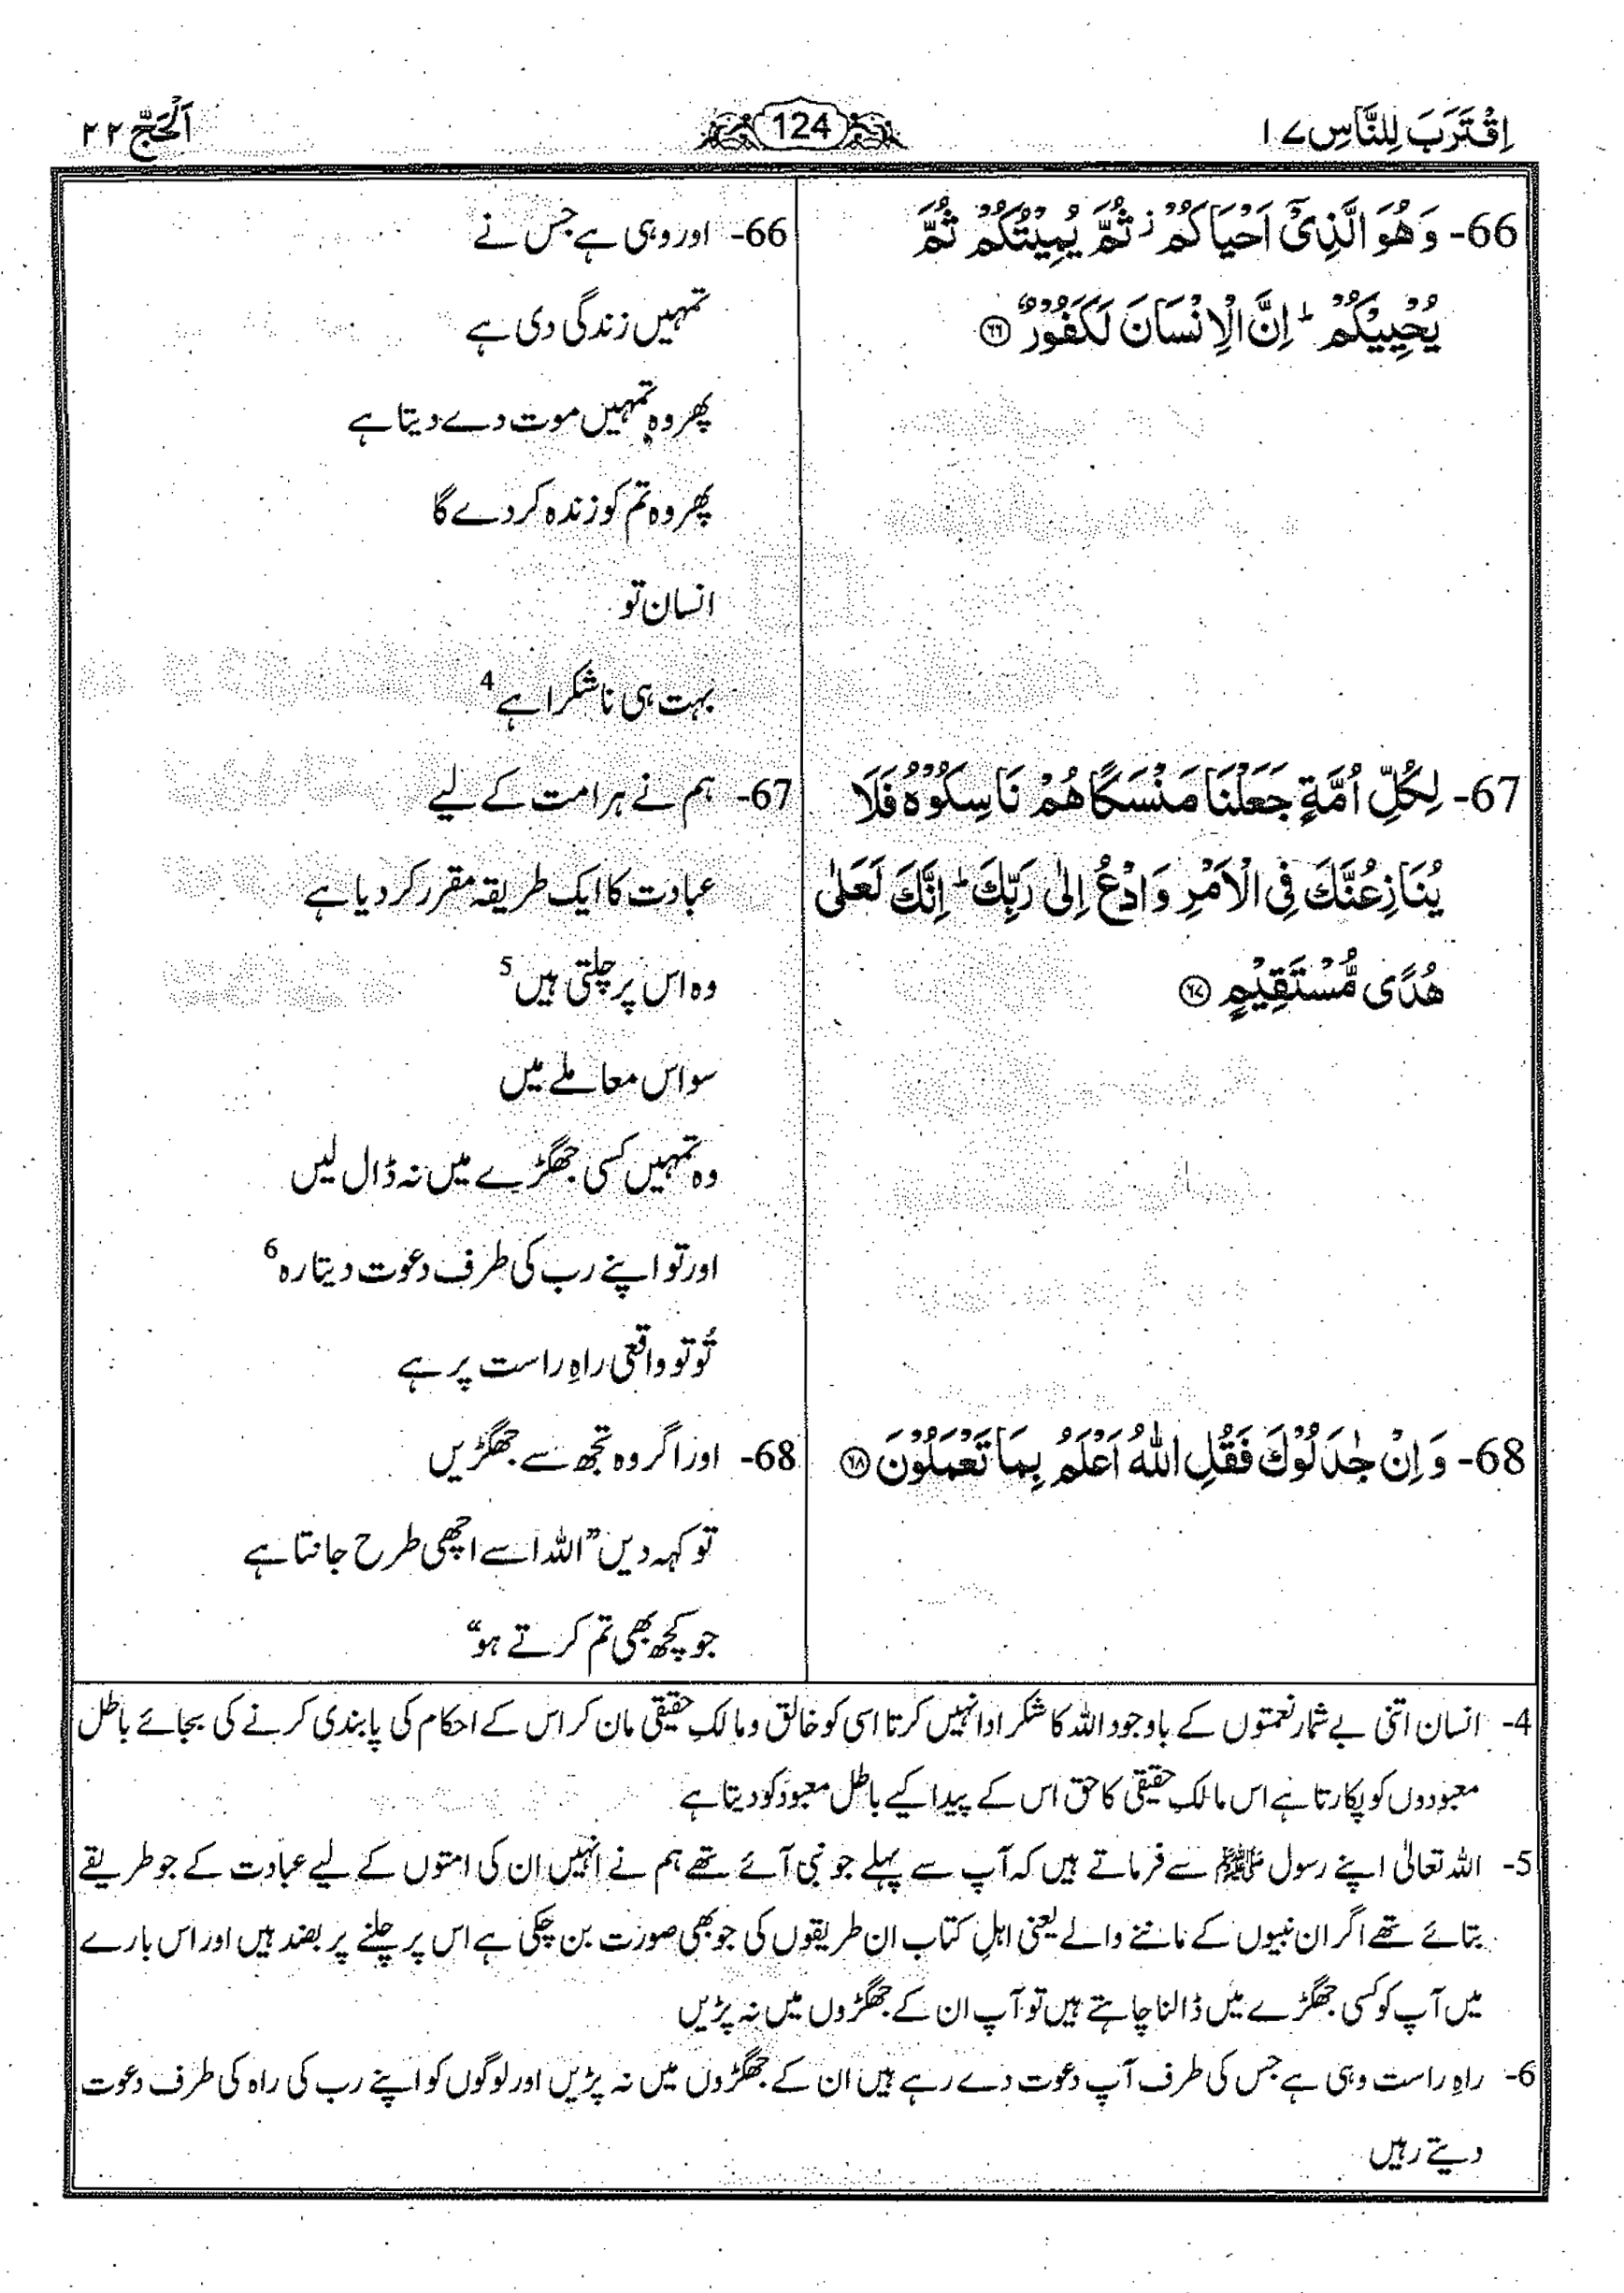 اِقْتَرَبَ لِلنَّاسِ ۱۷
124
اَلْحَجّ ۲۲
66- وَ هُوَ الَّذِیْۤ اَحْیَاكُمْ ؗ ثُمَّ یُمِیْتُكُمْ ثُمَّ
یُحْیِیْكُمْ ؕ اِنَّ الْاِنْسَانَ لَكَفُوْرٌ ﴿۶۶﴾
66- اور وہی ہے جس نے
تمہیں زندگی دی ہے
پھر وہ تمہیں موت دے دیتا ہے
پھر وہ تم کو زندہ کر دے گا
انسان تو
بہت ہی ناشکرا ہے 4
67- لِكُلِّ اُمَّةٍ جَعَلْنَا مَنْسَكًا هُمْ نَاسِكُوْهُ فَلَا
یُنَازِعُنَّكَ فِی الْاَمْرِ وَ ادْعُ اِلٰی رَبِّكَ ؕ اِنَّكَ لَعَلٰی
هُدًی مُّسْتَقِیْمٍ ﴿۶۷﴾
67- ہم نے ہر امت کے لیے
عبادت کا ایک طریقہ مقرر کر دیا ہے
وہ اس پر چلتی ہیں 5
سو اس معاملے میں
وہ تمہیں کسی جھگڑے میں نہ ڈال لیں
اور تو اپنے رب کی طرف دعوت دیتا رہ 6
تُو تو واقعی راہِ راست پر ہے
68- وَ اِنْ جٰدَلُوْكَ فَقُلِ اللّٰهُ اَعْلَمُ بِمَا تَعْمَلُوْنَ ﴿۶۸﴾
68- اور اگر وہ تجھ سے جھگڑیں
تو کہہ دیں ”اللہ اسے اچھی طرح جانتا ہے
جو کچھ بھی تم کرتے ہو“
4- انسان اتنی بے شمار نعمتوں کے باوجود اللہ کا شکر ادا نہیں کرتا اسی کو خالق و مالکِ حقیقی مان کر اس کے احکام کی پابندی کرنے کی بجائے باطل
معبودوں کو پکارتا ہے اس مالکِ حقیقی کا حق اس کے پیدا کیے باطل معبود کو دیتا ہے
5- اللہ تعالیٰ اپنے رسول ﷺ سے فرماتے ہیں کہ آپ سے پہلے جو نبی آئے تھے ہم نے انہیں ان کی امتوں کے لیے عبادت کے جو طریقے
بتائے تھے اگر ان نبیوں کے ماننے والے یعنی اہلِ کتاب ان طریقوں کی جو بھی صورت بن چکی ہے اس پر چلنے پر بضد ہیں اور اس بارے
میں آپ کو کسی جھگڑے میں ڈالنا چاہتے ہیں تو آپ ان کے جھگڑوں میں نہ پڑیں
6- راہِ راست وہی ہے جس کی طرف آپ دعوت دے رہے ہیں ان کے جھگڑوں میں نہ پڑیں اور لوگوں کو اپنے رب کی راہ کی طرف دعوت
دیتے رہیں